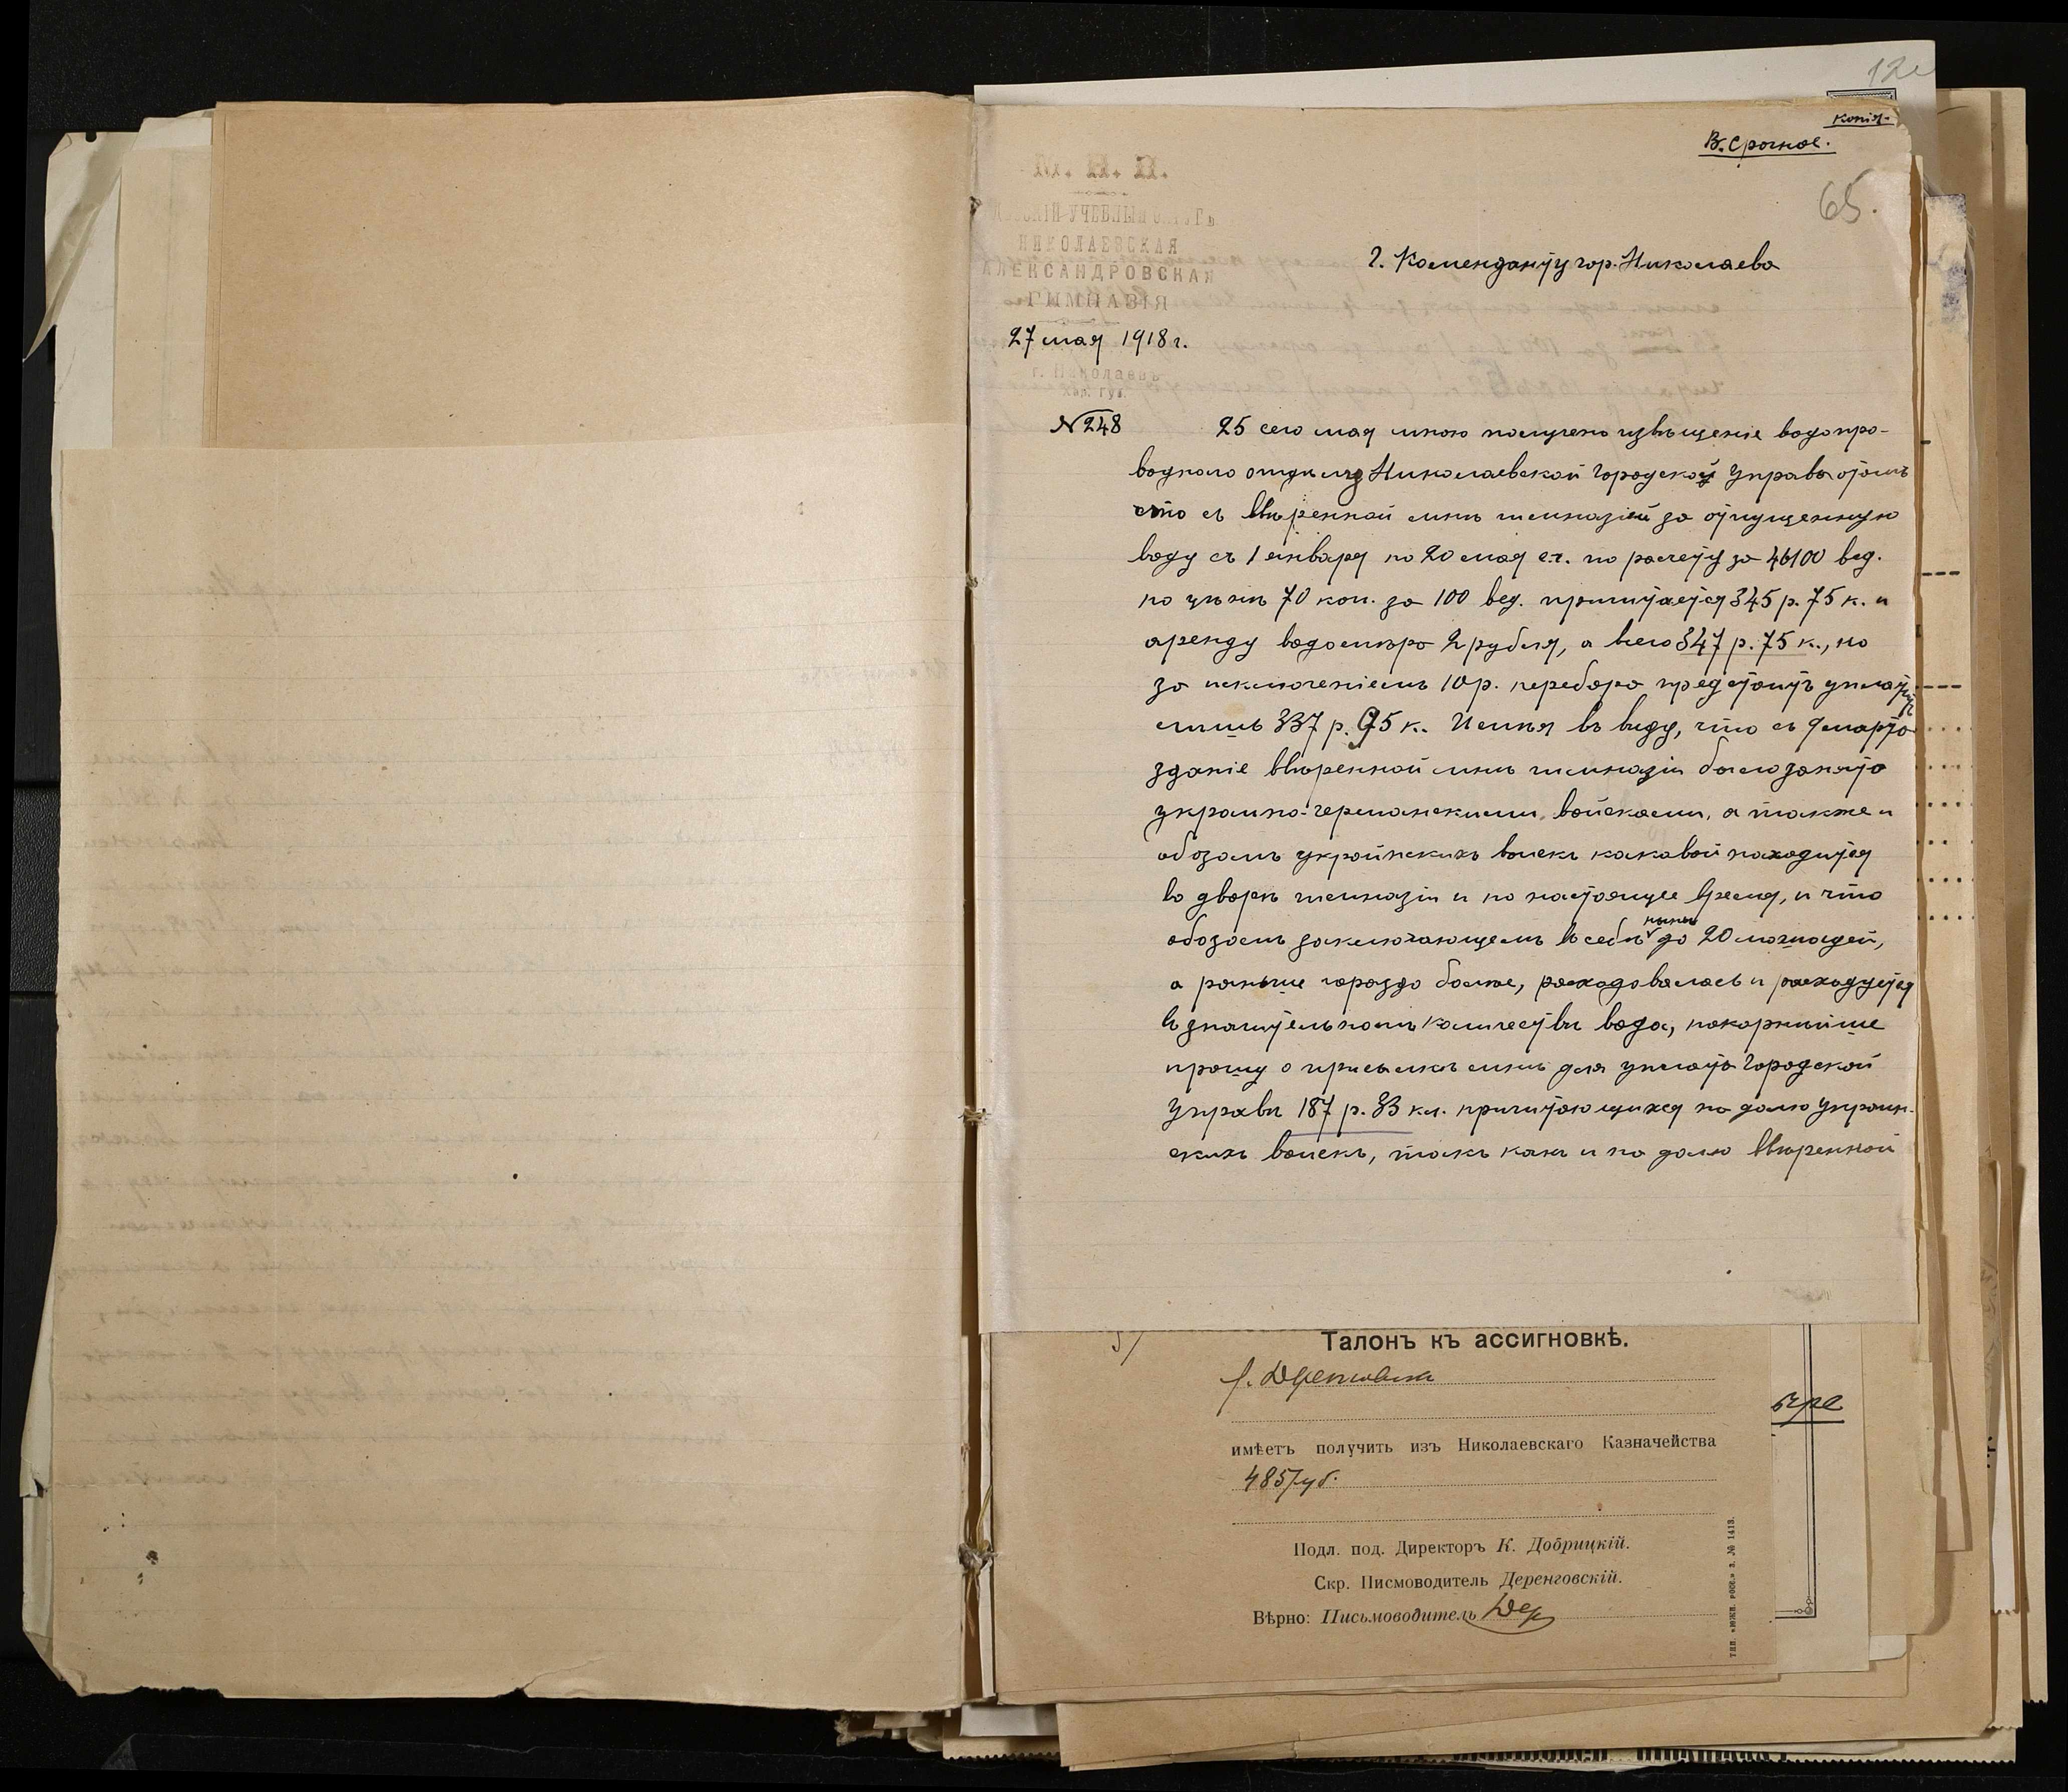 12
копія.
В. Срочное.
65.
М. Н. П.
УЧЕБНЫЙ ОКРУГЪ
НИКОЛАЕВСКАЯ
АЛЕКСАНДРОВСКАЯ
ГИМНАЗІЯ
27 мая 1918 г.
г. Николаевъ
Хер. губ.
Г. Коменданту гор. Николаева
№ 248
25 сего мая мною получено извѣщеніе водопро-
водного отдѣла Николаевской Городской Управы о томъ
что съ ввѣренной мнѣ гимназіей за отпущенную
воду съ 1 января по 20 мая с.г. по расчету за 46100 вед.
по цѣнѣ 70 коп. за 100 вед. причитается 345 р. 75 к. и
аренду водомѣра 2 рубля, а всего 347 р. 75 к., но
за исключеніемъ 10 р. перебора предстоитъ уплатить
лишь 337 р. 75 к. Имѣя въ виду, что съ 9 марта
зданіе ввѣренной мнѣ гимназіи было занято
украино-германскими войсками, а также и
обозомъ украинскихъ войскъ каковой находится
во дворѣ гимназіи и по настоящее время, и что
обозомъ заключающемъ въ себѣ нынѣ до 20 лошадей,
а раньше гораздо болѣе, расходовалась и расходуется
въ значительномъ количествѣ вода, покорнѣйше
прошу о присылкѣ мнѣ для уплаты Городской
Управѣ 187 р. 33 к. причитающихся на долю украин-
скихъ войскъ, такъ какъ и на долю ввѣренной
Талонъ къ ассигновкѣ.
имѣетъ получить изъ Николаевскаго Казначейства
485 руб.
Подл. под. Директоръ К. Добрицкій.
Скр. Писмоводитель Деренговскій.
Вѣрно: Письмоводитель Дер
тип. «южн. росс.» з. № 1413.